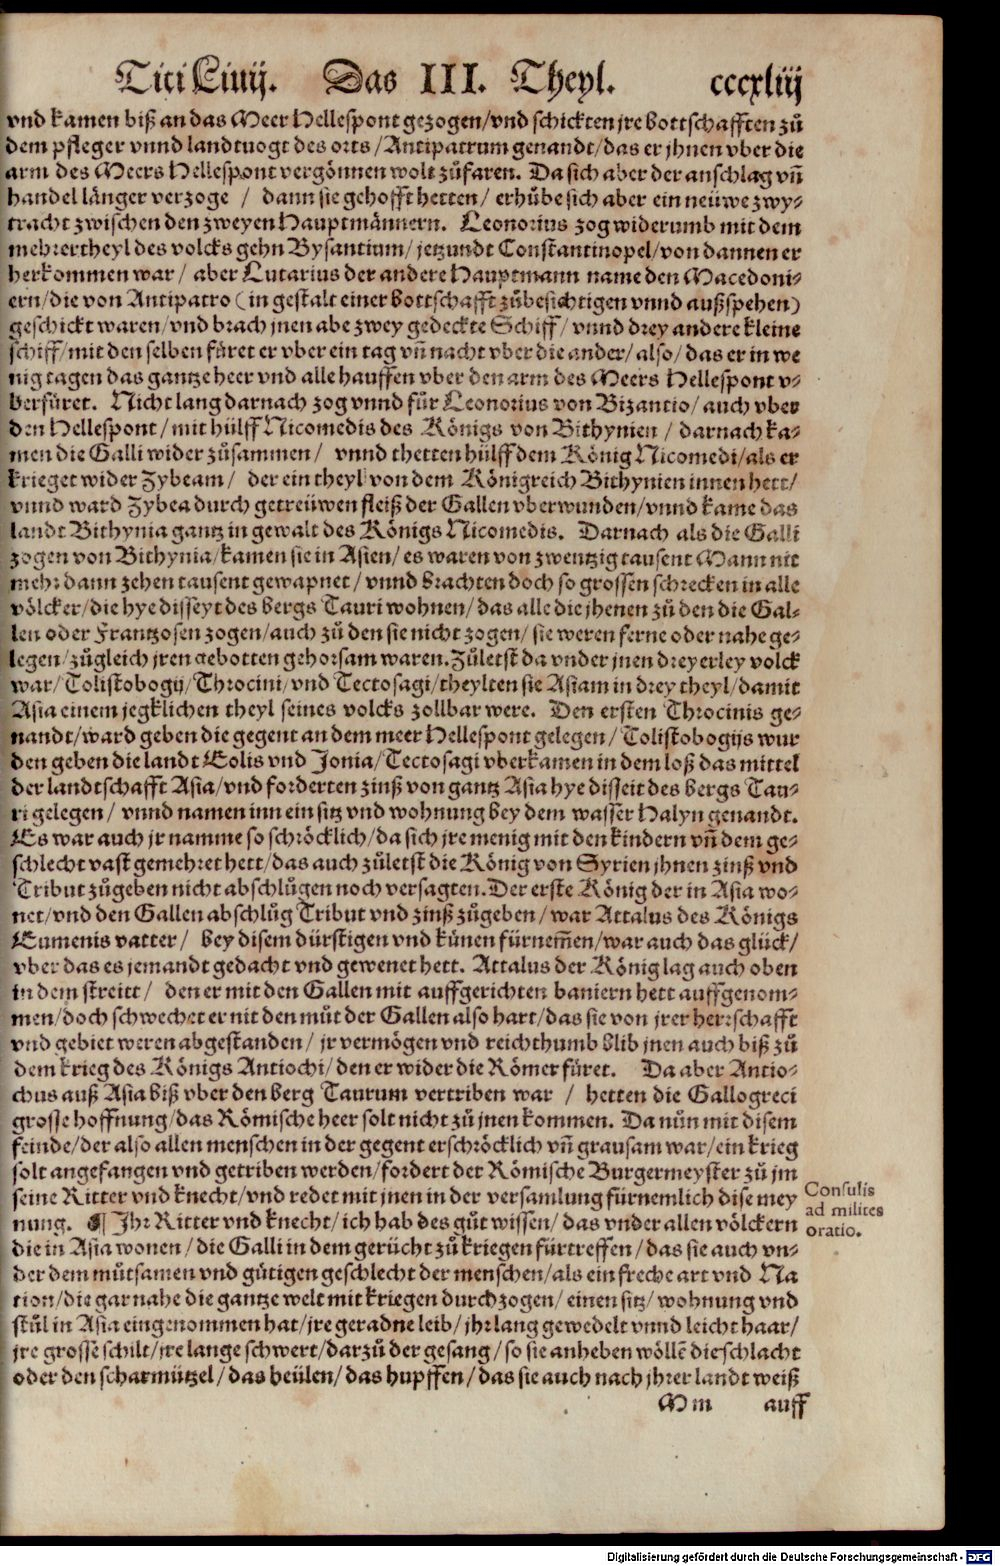 Titi Liuij. Das III. Theyl. cccxliij
vnd kamen biß an das Meer Hellespont gezogen/vnd schickten jre bottschafften zů
dem pfleger vnnd landtuogt des orts/Antipatrum genandt/das er jhnen vber die
arm des Meers Hellespont vergönnen wolt zůfaren. Da sich aber der anschlag vñ
handel länger verzoge / dann sie gehofft hetten/ erhůbe sich aber ein neüwe zwy-
tracht zwischen den zweyen Hauptmännern. Leonorius zog widerumb mit dem
mehrertheyl des volcks gehn Bysantium/jetzundt Constantinopel/von dannen er
herkommen war/ aber Lutarius der andere Hauptmann name den Macedoni-
ern/die von Antipatro (in gestalt einer bottschafft zůbesichtigen vnnd außspehen)
geschickt waren/vnd brach jnen abe zwey gedeckte Schiff/ vnnd drey andere kleine
schiff/mit den selben fůret er vber ein tag vñ nacht vber die ander/also/das er in we
nig tagen das gantze heer vnd alle hauffen vber den arm des Meers Hellespont v-
berfůret. Nicht lang darnach zog vnnd fůr Leonorius von Bizantio/auch vber
den Hellespont/mit hülff Nicomedis des Königs von Bithynien / darnach ka-
men die Galli wider zůsammen/ vnnd thetten hülff dem König Nicomedi/als er
krieget wider Zybeam/ der ein theyl von dem Königreich Bithynien innen hett/
vnnd ward Zybea durch getreüwen fleiß der Gallen vberwunden/vnnd kame das
landt Bithynia gantz in gewalt des Königs Nicomedis. Darnach als die Galli
zogen von Bithynia/kamen sie in Asien/es waren von zwentzig tausent Mann nit
mehr dann zehen tausent gewapnet/vnnd brachten doch so grossen schrecken in alle
völcker/die hye disseyt des bergs Tauri wohnen/das alle die jhenen zů den die Gal-
len oder Frantzosen zogen/auch zů den sie nicht zogen/ sie weren ferne oder nahe ge-
legen/zůgleich jren gebotten gehorsam waren. Zůletst da vnder jnen dreyerley volck
war/Tolistobogij/Throcini/vnd Tectosagi/theylten sie Asiam in drey theyl/damit
Asia einem jegklichen theyl seines volcks zollbar were. Den ersten Throcinis ge-
nandt/ward geben die gegent an dem meer Hellespont gelegen/Tolistobogijs wur
den geben die landt Eolis vnd Jonia/Tectosagi vberkamen in dem loß das mittel
der landtschafft Asia/vnd forderten zinß von gantz Asia hye disseit des bergs Tau-
ri gelegen/ vnnd namen inn ein sitz vnd wohnung bey dem wasser Halyn genandt.
Es war auch jr namme so schröcklich/da sich jre menig mit den kindern vñ dem ge-
schlecht vast gemehret hett/das auch zůletst die König von Syrien jhnen zinß vnd
Tribut zůgeben nicht abschlůgen noch versagten. Der erste König der in Asia wo-
net/vnd den Gallen abschlůg Tribut vnd zinß zůgeben/war Attalus des Königs
Eumenis vatter/ bey disem dürstigen vnd künen fürnem̃en/war auch das glück/
vber das es jemandt gedacht vnd gewenet hett. Attalus der König lag auch oben
in dem streitt/ den er mit den Gallen mit auffgerichten baniern hett auffgenom-
men/doch schwechet er nit den můt der Gallen also hart/das sie von jrer herrschafft
vnd gebiet weren abgestanden/jr vermögen vnd reichthumb blib jnen auch biß zů
dem krieg des Königs Antiochi/den er wider die Römer fůret. Da aber Antio-
chus auß Asia biß vber den berg Taurum vertriben war / hetten die Gallogreci
grosse hoffnung/das Römische heer solt nicht zů jnen kommen. Da nůn mit disem
feinde/der also allen menschen in der gegent erschröcklich vñ grausam war/ein krieg
solt angefangen vnd getriben werden/fordert der Römische Burgermeyster zů jm
seine Ritter vnd knecht/vnd redet mit jnen in der versamlung fürnemlich dise mey
nung. ¶ Jhr Ritter vnd knecht/ich hab des gůt wissen/das vnder allen völckern
die in Asia wonen/die Galli in dem gerücht zů kriegen fürtreffen/das sie auch vn-
der dem můtsamen vnd gütigen geschlecht der menschen/als ein freche art vnd Na
tion/die gar nahe die gantze welt mit kriegen durchzogen/einen sitz/wohnung vnd
stůl in Asia eingenommen hat/jre geradne leib/jhr lang gewedelt vnnd leicht haar/
jre grosse schilt/jre lange schwert/darzů der gesang/so sie anheben wöllẽ die schlacht
oder den scharmützel/das heülen/das hupffen/das sie auch nach jhrer landt weiß
Consulis
ad milites
oratio.
Mm auff
Digitalisierung gefördert durch die Deutsche Forschungsgemeinschaft - DFG